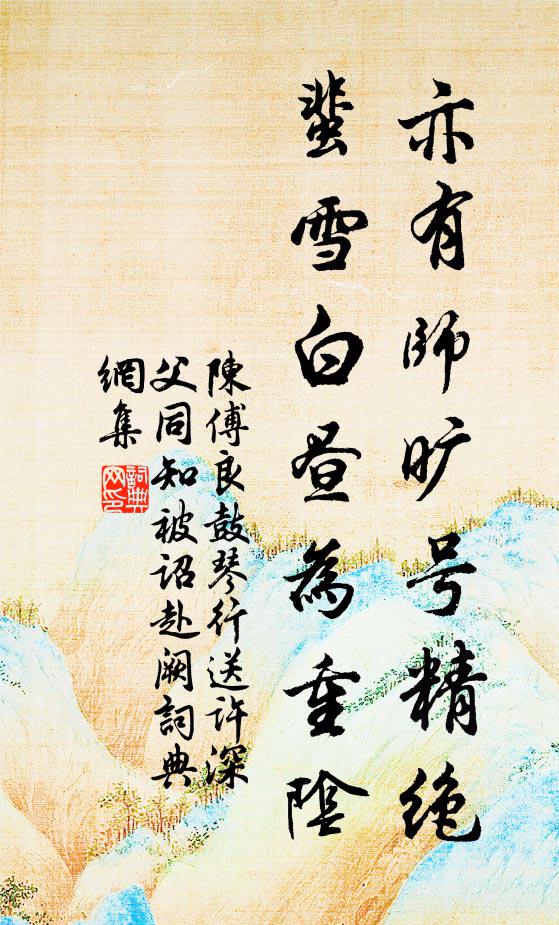 亦有师旷号精绝
蜚雪白昼为重阴
陳傅良鼓琴行送许深
父同知被诏赴阙詞典
網集
詞典網印